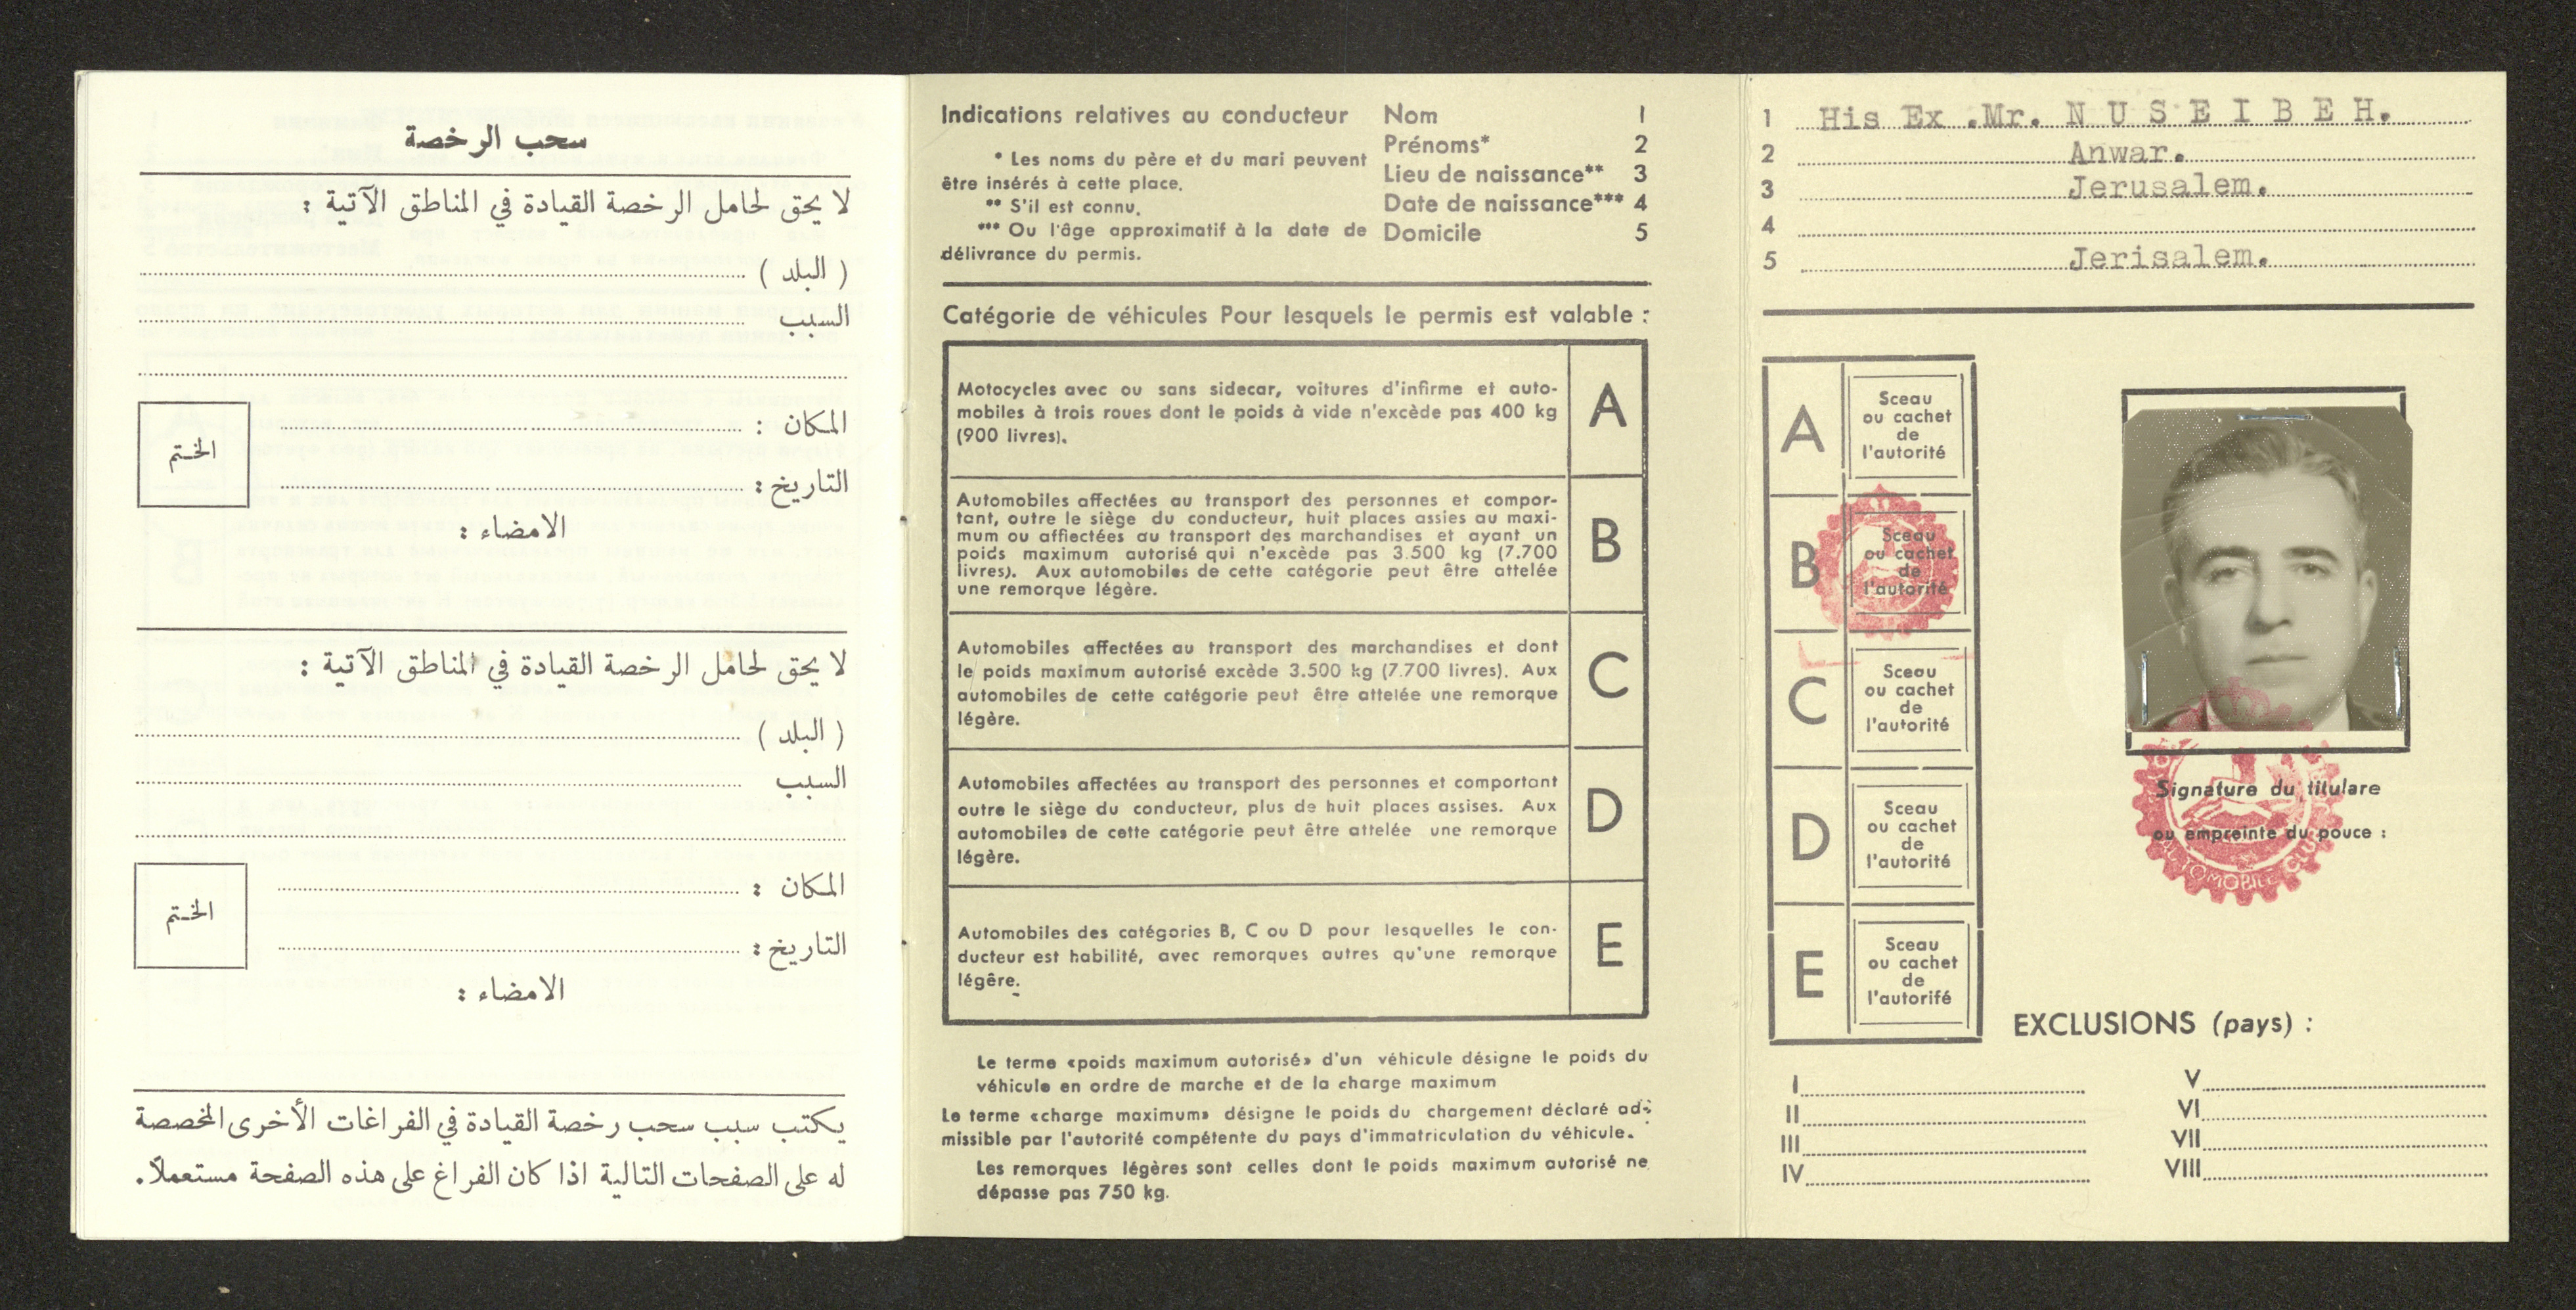 سحب الرخصة
لا يحق لحامل الرخصة القيادة في المناطق الآتية :
( البلد )
السبب
المكان :
التاريخ :
الختم
الامضاء :
لا يحق لحامل الرخصة القيادة في المناطق الآتية :
( البلد )
السبب
المكان :
التاريخ :
الختم
الامضاء :
يكتب سبب سحب رخصة القيادة في الفراغات الأخرى المخصصة
له على الصفحات التالية اذا كان الفراغ على هذه الصفحة مستعملاً.
Indications relatives au conducteur
* Les noms du père et du mari peuvent
être insérés à cette place.
** S'il est connu.
*** Ou l'âge approximatif à la date de
délivrance du permis.
Nom 1
Prénoms* 2
Lieu de naissance** 3
Date de naissance*** 4
Domicile 5
Catégorie de véhicules Pour lesquels le permis est valable :
Motocycles avec ou sans sidecar, voitures d'infirme et auto-
mobiles à trois roues dont le poids à vide n'excède pas 400 kg
(900 livres).
A
Automobiles affectées au transport des personnes et compor-
tant, outre le siège du conducteur, huit places assies au maxi-
mum ou affiectées au transport des marchandises et ayant un
poids maximum autorisé qui n'excède pas 3.500 kg (7.700
livres). Aux automobiles de cette catégorie peut être attelée
une remorque légère.
B
Automobiles affectées au transport des marchandises et dont
le poids maximum autorisé excède 3.500 kg (7.700 livres). Aux
automobiles de cette catégorie peut être attelée une remorque
légère.
C
Automobiles affectées au transport des personnes et comportant
outre le siège du conducteur, plus de huit places assises. Aux
automobiles de cette catégorie peut être attelée une remorque
légère.
D
Automobiles des catégories B, C ou D pour lesquelles le con-
ducteur est habilité, avec remorques autres qu'une remorque
légère.
E
Le terme «poids maximum autorisé» d'un véhicule désigne le poids du
véhicule en ordre de marche et de la charge maximum
Le terme «charge maximum» désigne le poids du chargement déclaré ad-
missible par l'autorité compétente du pays d'immatriculation du véhicule.
Les remorques légères sont celles dont le poids maximum autorisé ne
dépasse pas 750 kg.
1 His Ex .Mr. N U S E I B E H.
2 Anwar.
3 Jerusalem.
4
5 Jerisalem.
A
Sceau
ou cachet
de
l'autorité
B
Sceau
ou cachet
de
l'autorité
C
Sceau
ou cachet
de
l'autorité
D
Sceau
ou cachet
de
l'autorité
E
Sceau
ou cachet
de
l'autorifé
Signature du titulare
ou empreinte du pouce :
AUTOMOBILE CLUB
EXCLUSIONS (pays) :
I
II
III
IV
V
VI
VII
VIII